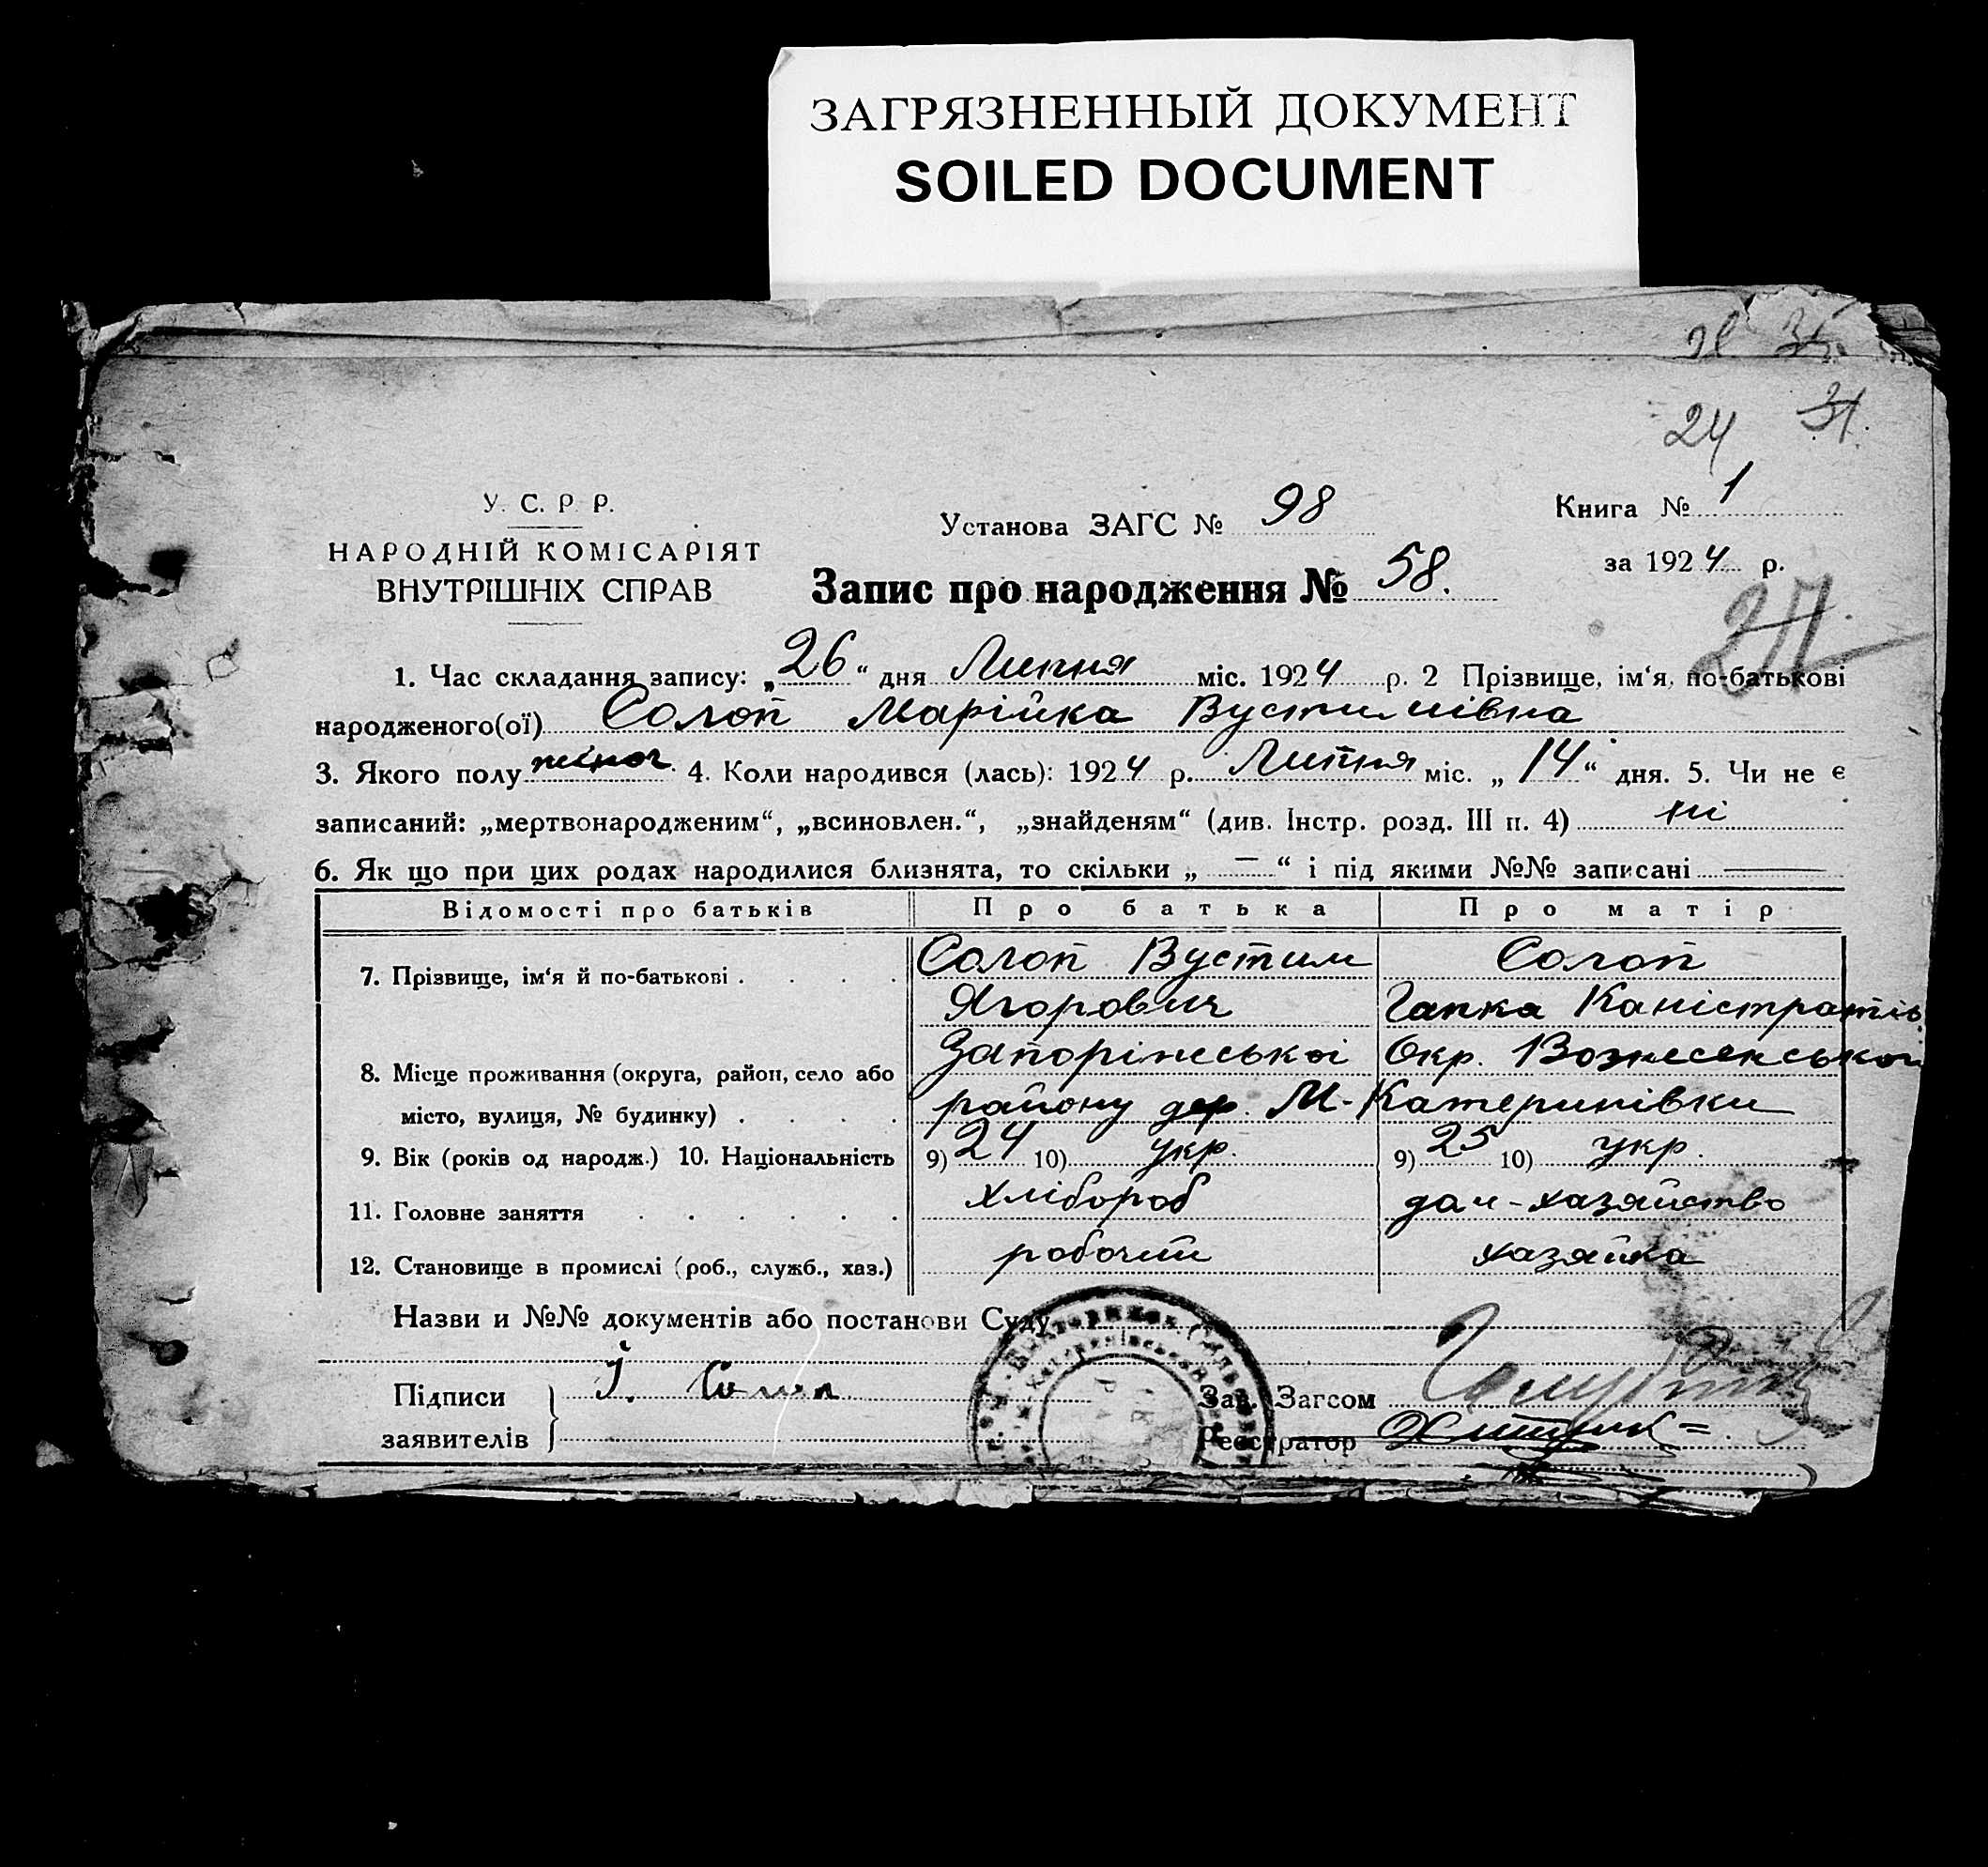 ЗАГРЯЗНЕННЫЙ ДОКУМЕНТ
SOILED DOCUMENT
24 31
У. С. Р. Р.
НАРОДНІЙ КОМІСАРІЯТ
ВНУТРІШНІХ СПРАВ
Установа ЗАГС № 98
Книга № 1
за 1924 р.
Запис про народження № 58.
1. Час складання запису: „26“ дня Липня міс. 1924 р. 2 Прізвище, ім'я, по-батькові
народженого(ої) Солоп Марійка Вустимівна
3. Якого полу жіноч. 4. Коли народився (лась): 1924 р. Липня міс. „14“ дня. 5. Чи не є
записаний: „мертвонародженим“, „всиновлен.“, „знайденям“ (див. Інстр. розд. III п. 4) ні
6. Як що при цих родах народилися близнята, то скільки „—“ і під якими №№ записані —
Відомості про батьків Про батька Про матір
7. Прізвище, ім'я й по-батькові Солоп Вустим Солоп
Ягорович Гапка Каністратів.
8. Місце проживання (округа, район, село або Запоріжської Окр. Вознесенської
місто, вулиця, № будинку) району дер. М-Катеринівки
9. Вік (років од народж.) 10. Національність 9) 24 10) укр. 9) 25 10) укр.
11. Головне заняття хлібороб дом-хазяйство
12. Становище в промислі (роб., служб., хаз.) робочий хазяйка
Назви и №№ документів або постанови Суду
Підписи
заявителів
Зав. Загсом
Реєстратор